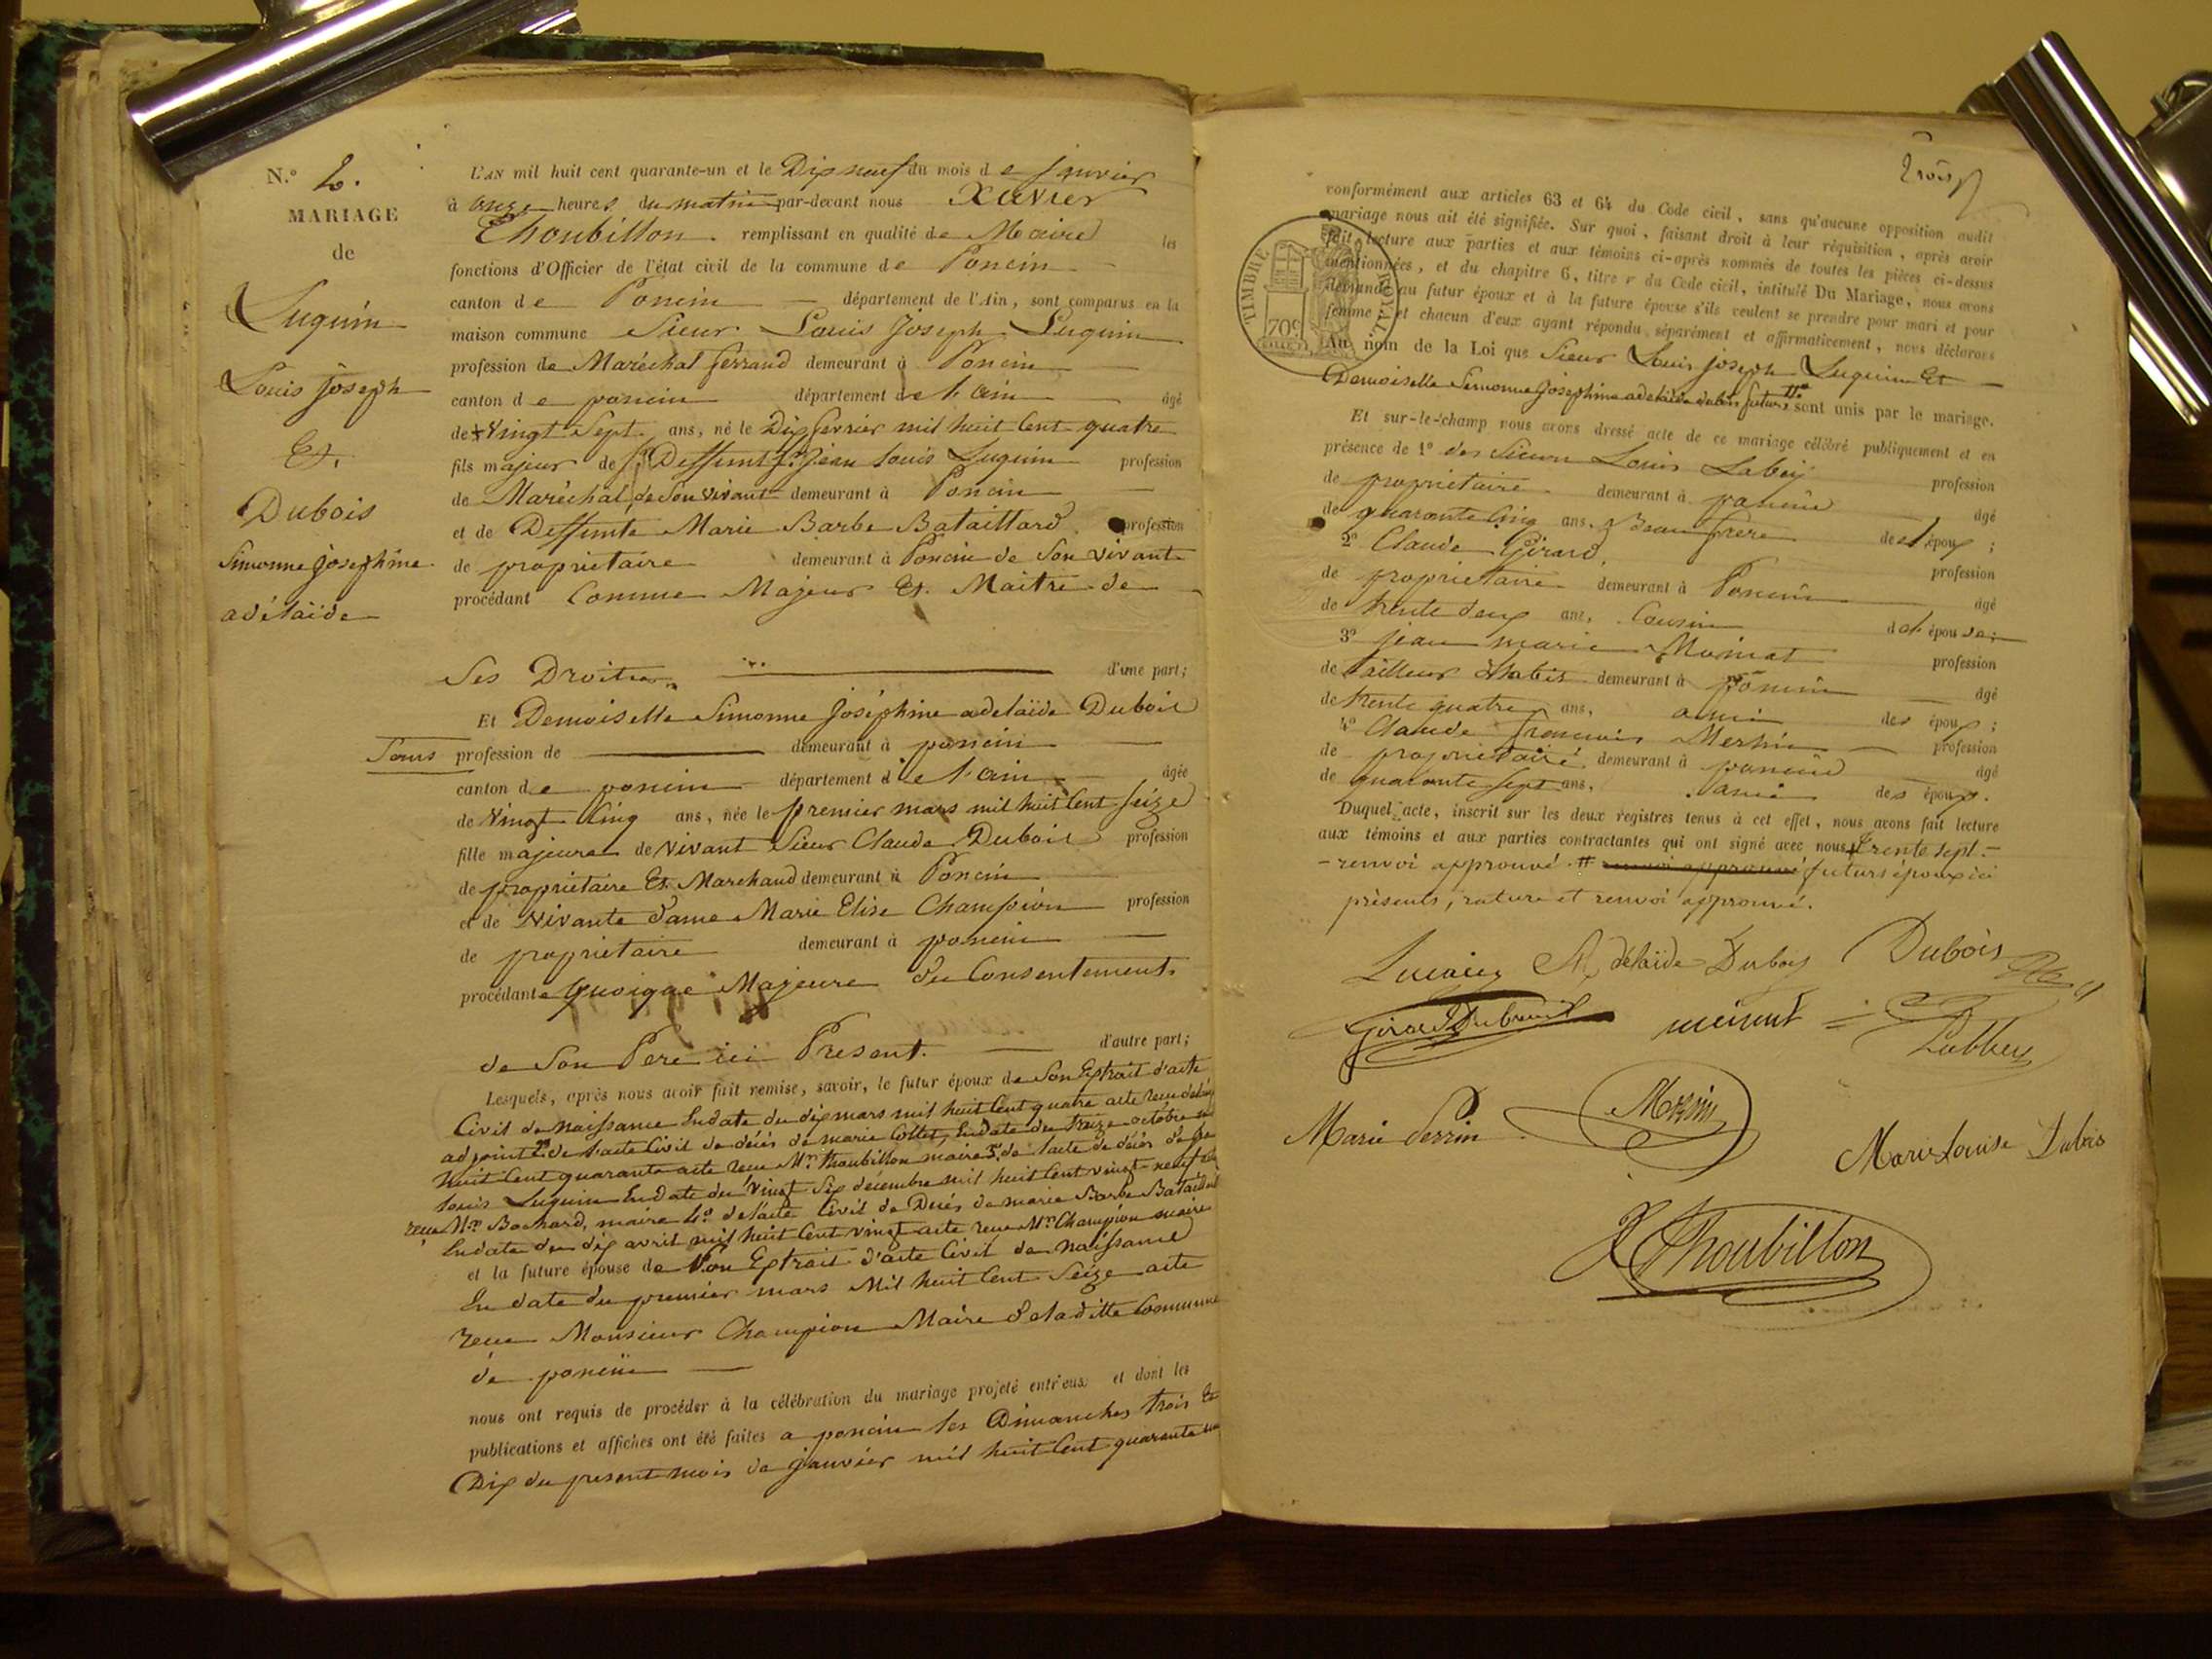 N.° 2.
MARIAGE
de
Luquin
Louis joseph
Et.
Dubois
Simonne josephine
adélaïde
L'AN mil huit cent quarante-un et le Dix neuf du mois de janvier
à onze heures du matin par-devant nous Xavier
Thoubillon. remplissant en qualité de Maire les
fonctions d'Officier de l'état civil de la commune de Poncin
canton de Poncin département de l'Ain, sont comparus en la
maison commune Sieur Louis Joseph Luquin
profession de Maréchal ferrand demeurant à Poncin
canton de poncin département de l'ain âgé
de + Vingt Sept ans, né le Dix fevrier mil huit Cent quatre
fils majeur de Deffunt Sr. Jean Louis Luquin profession
de Maréchal, de Son vivant demeurant à Poncin
et de Deffunte Marie Barbe Bataillard profession
de propriétaire demeurant à Poncin de Son vivant
procédant Comme Majeur Et. Maitre de
Ses Droits d'une part;
Et Demoiselle Simonne Joséphine adelaïde Dubois
Sans profession de demeurant à poncin
canton de poncin département de l'ain âgée
de Vingt Cinq ans, née le premier mars mil huit Cent Seize
fille majeure de vivant Sieur Claude Dubois profession
de propriétaire Et. Marchand demeurant à Poncin
et de vivante dame Marie Elise Champion profession
de propriétaire demeurant à poncin
procédante quoique Majeure du Consentement
de Son Pere ici Present. d'autre part;
Lesquels, après nous avoir fait remise, savoir, le futur époux de Son Extrait d'acte
Civil de naissance En date du dix mars mil huit Cent quatre acte recu
adjoint 2° de l'acte Civil de décés de marie Collet, En date du treize octobre
huit Cent quarante acte recu Mr. Thoubillon maire 3° de l'acte de décès de
Louis Luquin En date du Vingt Six decembre mil huit Cent vingt neuf
recu Mr. Bochard, maire 4° de l'acte Civil de Décés de marie Barbe Bataillard
En date du dix avril mil huit Cent vingt acte recu Mr. Champion maire
et la future épouse de Son Extrait d'acte Civil de naissance
En date du premier mars Mil huit Cent Seize acte
recu Monsieur Champion Maire de laditte Commune
de poncin
nous ont requis de procéder à la célébration du mariage projeté entr'eux et dont les
publications et affiches ont été faites a poncin les Dimanches trois Et
Dix du present mois de janvier mil huit Cent quarante un
Trois
conformément aux articles 63 et 64 du Code civil, sans qu'aucune opposition audit
mariage nous ait été signifiée. Sur quoi, faisant droit à leur réquisition, après avoir
fait lecture aux parties et aux témoins ci-après nommés de toutes les pièces ci-dessus
mentionnées, et du chapitre 6, titre v du Code civil, intitulé Du Mariage, nous avons
demandé au futur époux et à la future épouse s'ils veulent se prendre pour mari et pour
femme; et chacun d'eux ayant répondu séparément et affirmativement, nous déclarons
Au nom de la Loi que Sieur Louis Joseph Luquin Et
TIMBRE ROYAL.
70c
Demoiselle Simonne Josephine adelaïde dubois futurs # sont unis par le mariage.
Et sur-le-champ nous avons dressé acte de ce mariage célébré publiquement et en
présence de 1° des Sieurs Louis Labey profession
de propriétaire demeurant à poncin âgé
de quarante Cinq ans, Beau frere de l'époux;
2° Claude Girard profession
de propriétaire demeurant à Poncin âgé
de trente deux ans, Cousin de l'épouse;
3° jean marie Moinat profession
de tailleur d'habits demeurant à poncin âgé
de trente quatre ans, ami des époux;
4° Claude francois Mermin profession
de propriétaire demeurant à poncin âgé
de quarante sept ans, ami des époux.
Duquel acte, inscrit sur les deux registres tenus à cet effet, nous avons fait lecture
aux témoins et aux parties contractantes qui ont signé avec nous + trente sept.
renvoi approuvé. # renvoi approuvé futurs époux ici
présents, rature et renvoi approuvé.
Adélaïde Duboy Dubois
Girard Dubreuil Labbey
Marie Perrin Marie Louise Dubois
X Thoubillon